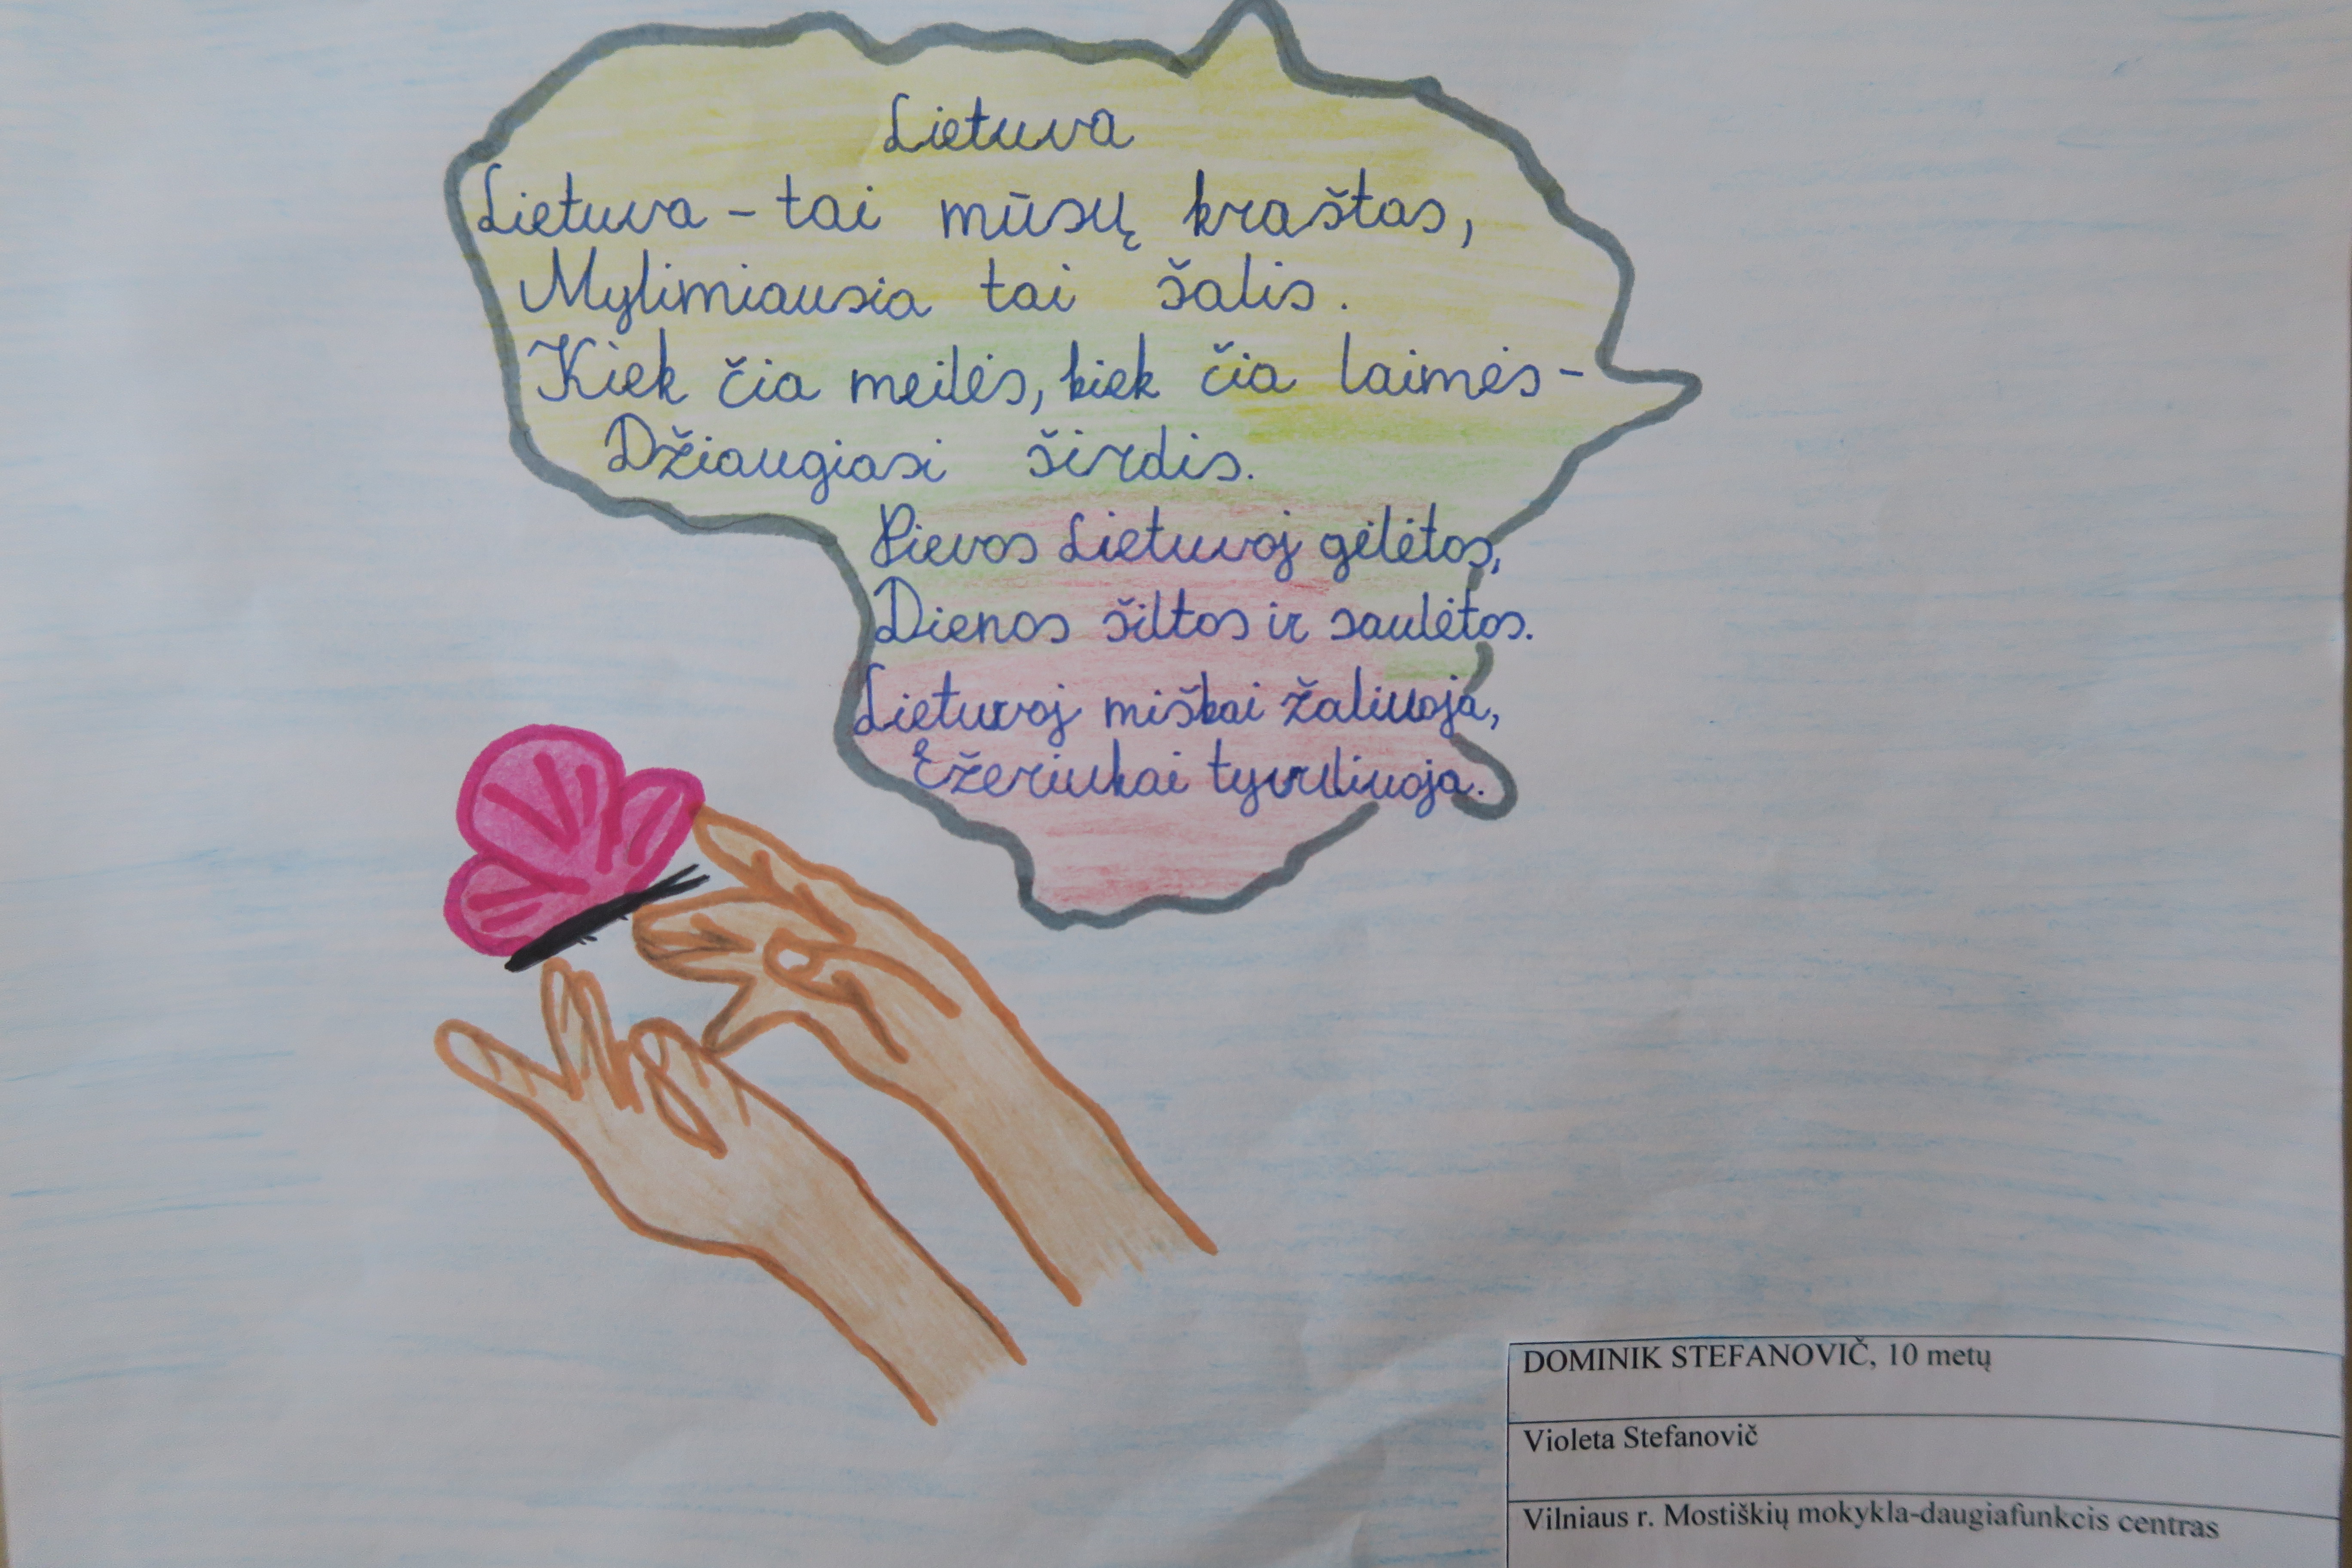 Lietuva
Lietuva - tai mūsų kraštas,
Mylimiausia tai šalis.
Kiek čia meilės, kiek čia laimės -
Džiaugiasi širdis.
Pievos Lietuvoj gėlėtos,
Dienos šiltos ir saulėtos.
Lietuvoj miškai žaliuoja,
Ežeriukai tyvuliuoja.
DOMINIK STEFANOVIČ, 10 metų
Violeta Stefanovič
Vilniaus r. Mostiškių mokykla-daugiafunkcis centras